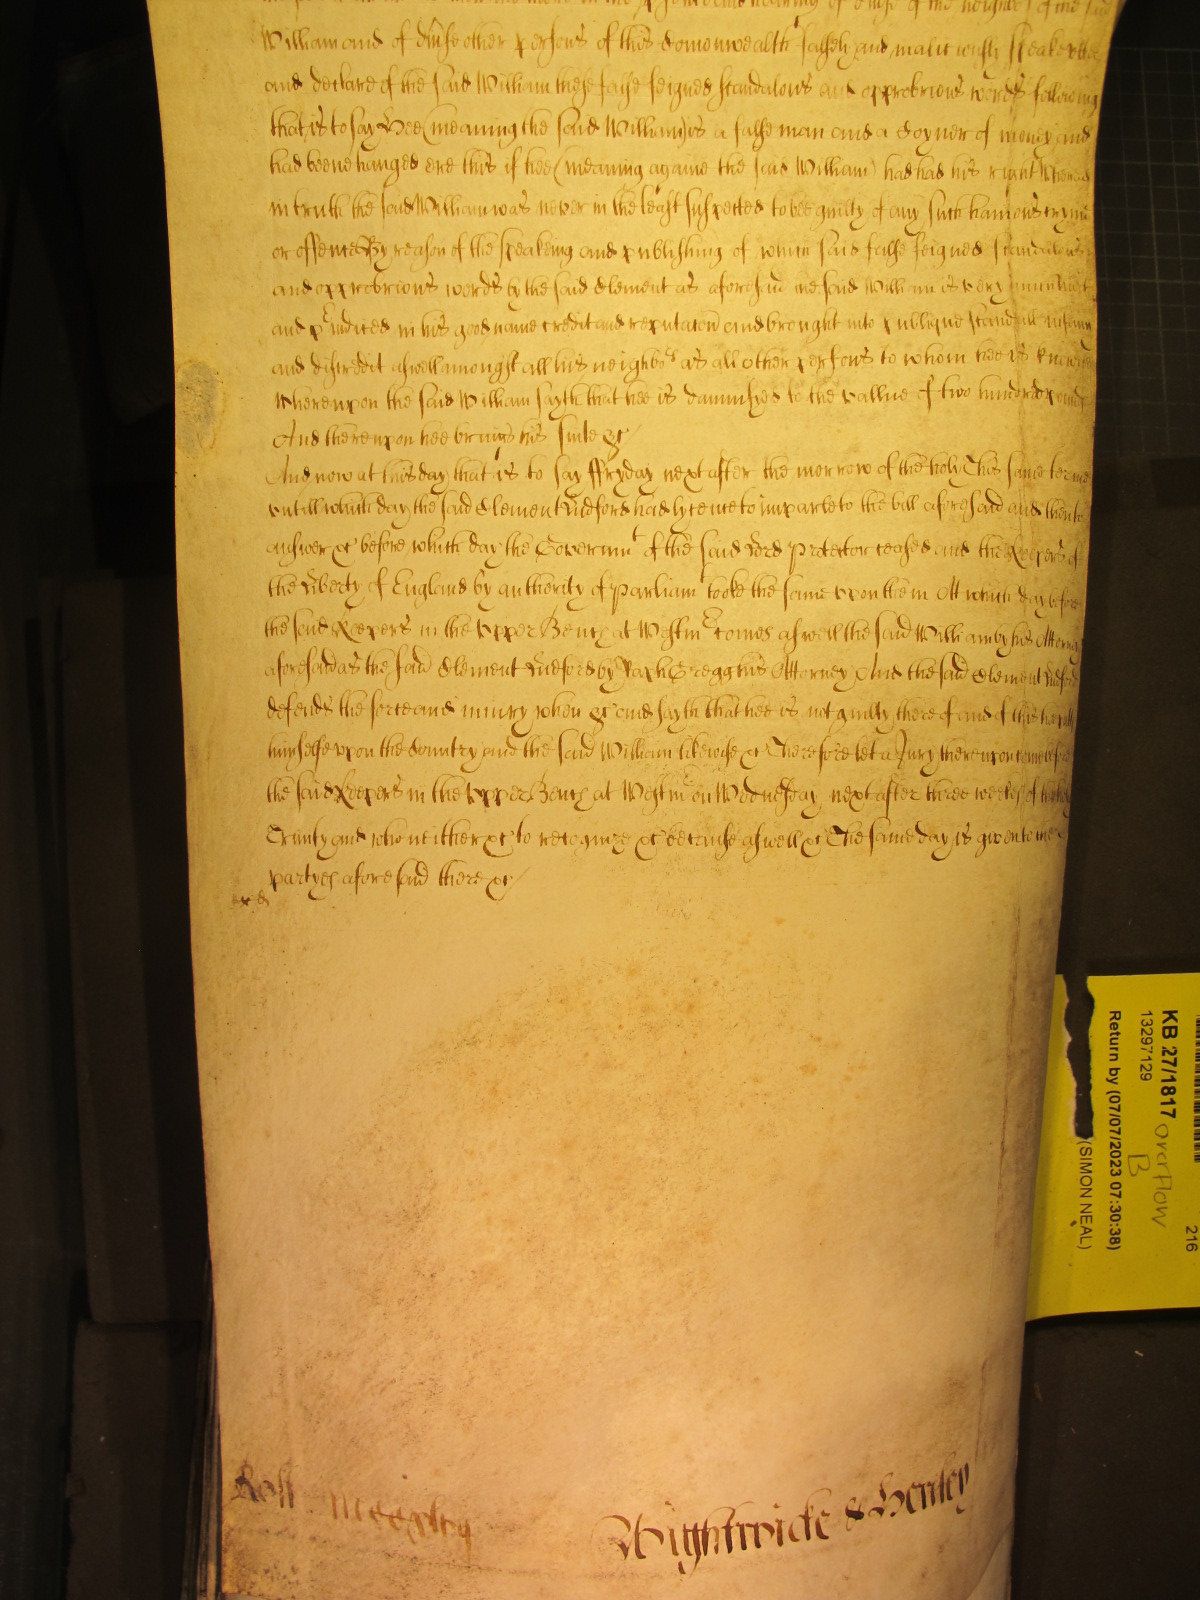 in the presence and hearing of diverse of the neighbors of the said
William and of divse other persons of this Comonwealth falsely and maliciously speake utter
and declare of the said William these false feigned scandalous and opprobrious words following
that is to say Hee (meaning the said William) is a false man and a Coyner of money and
had beene hanged ere this if hee (meaning againe the said William) had had his right Whereas
in truth the said William was never in the least suspected to bee guilty of any such hainous cryme
or offence By reason of the speaking and publishing of which said false feigned scandalous
and opprobrious words by the said Clement as aforesaid the said William is very much hurt
and piudiced in his good name credit and reputacon and brought into publique scandall infamy
and discredit aswell amongst all his neighbors as all other persons to whom hee is knowne
Whereupon the said William sayth that hee is damnifyed to the vallue of two hundred pounds
And thereupon hee brings his suite &c
And now at this day that is to say ffryday next after the morrow of the holy this same terme
untill which day the said Clement Ludford had lycence to imparle to the bill aforesaid and then to
answer &c before which day the Governmt of the said Lord Protector ceased and the Keepers of
the Liberty of England by authority of Parliamt tooke the same upon them Att which day before
the said Keepers in the Upper Bench at Westm comes aswell the said William by his Attorney
aforesaid as the said Clement Ludford by Gregg his Attorney And the said Clement Ludford
defends the force and iniury when &c and sayth that hee is not guilty thereof and of this
himselfe upon the Country and the said William likewise &c Therefore let a Jury thereupon come before
the said Keepers in the Upper Bench at Westm on Wednesday next after three weekes of the holy
Trinity and who neither &c to recognize &c because aswell &c The same day is given to the
partyes aforesaid there &c
Roll
Wightwicke & Henley
KB 27/1817
13297129
Return by (07/07/2023 07:30:38)
(SIMON NEAL)
overflow
B
216